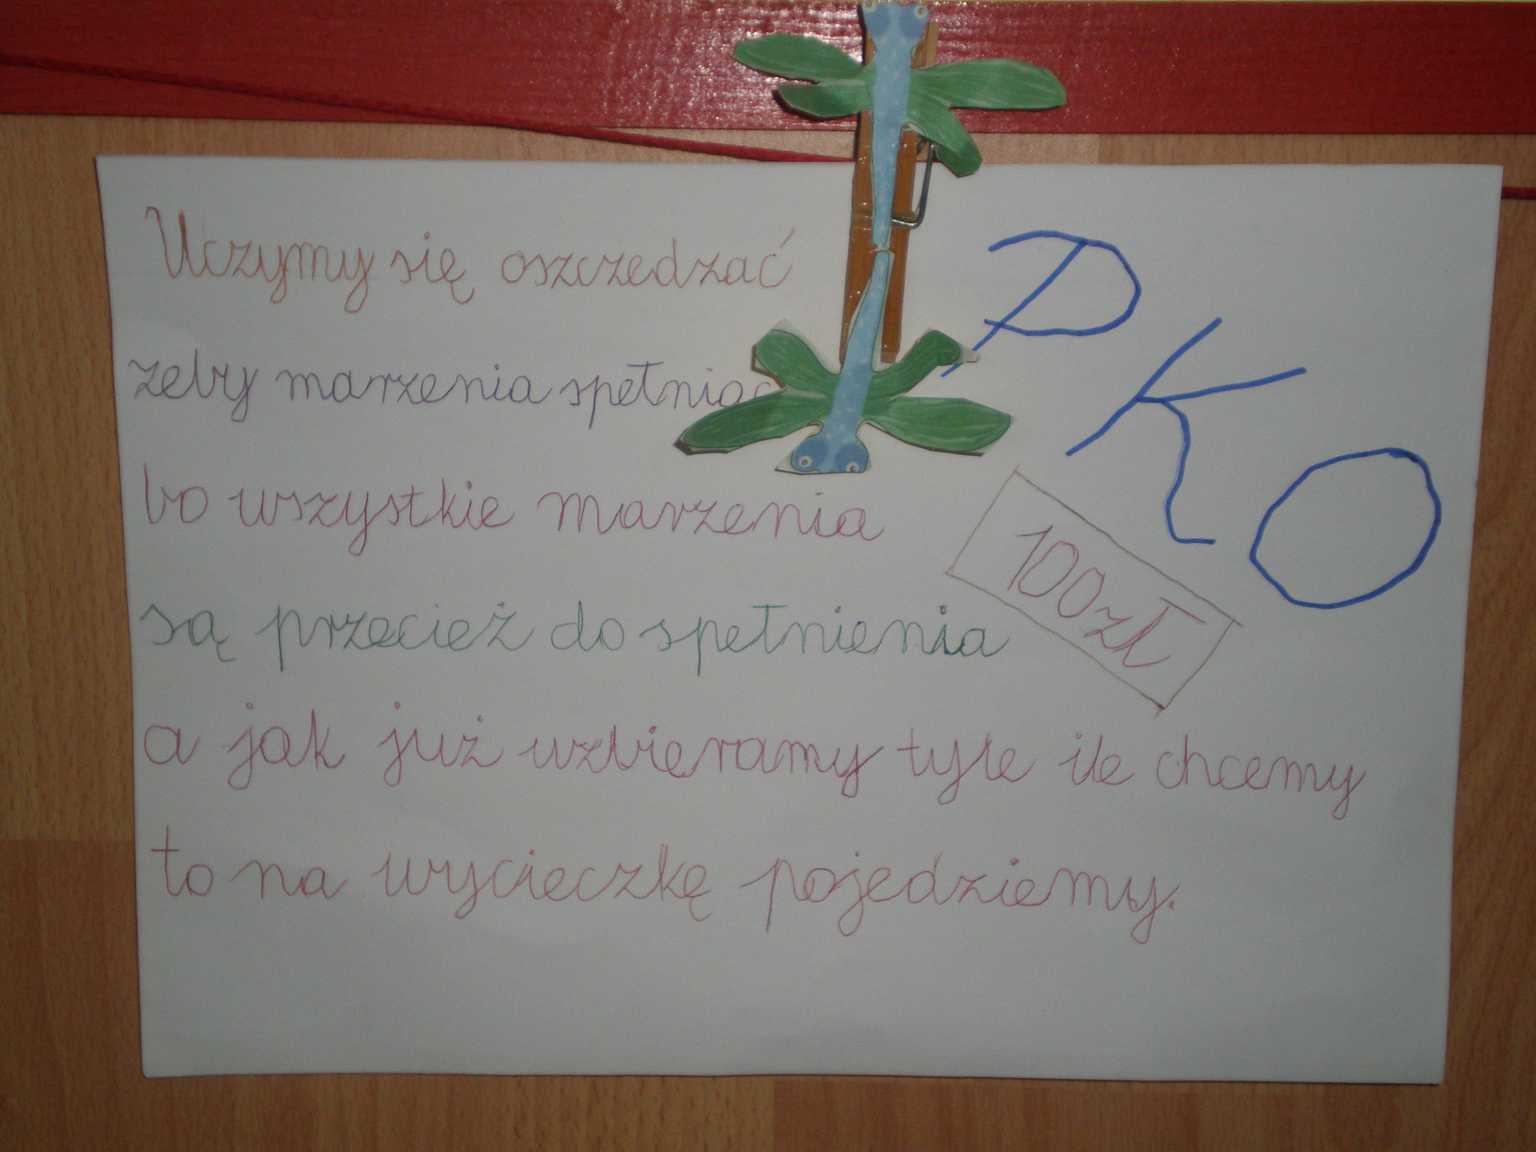 Uczymy się oszczedzać
zeby marzenia spełniać
bo wszystkie marzenia
są przecież do spełnienia
a jak już uzbieramy tyle ile chcemy
to na wycieczkę pojedziemy.
PKO
100zł